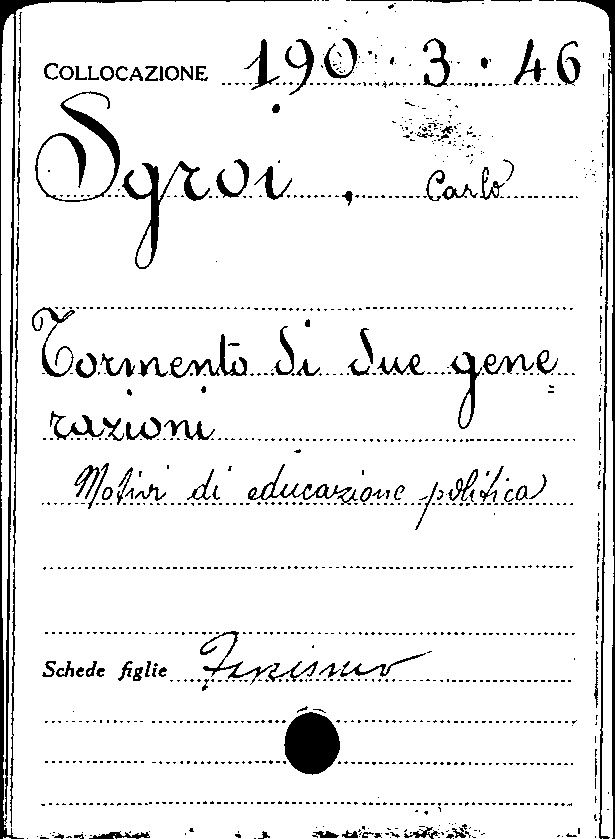 COLLOCAZIONE 190 · 3 · 46
Sgroi, Carlo
Tormento di due gene=
razioni
Motivi di educazione politica
Schede figlie Fascismo